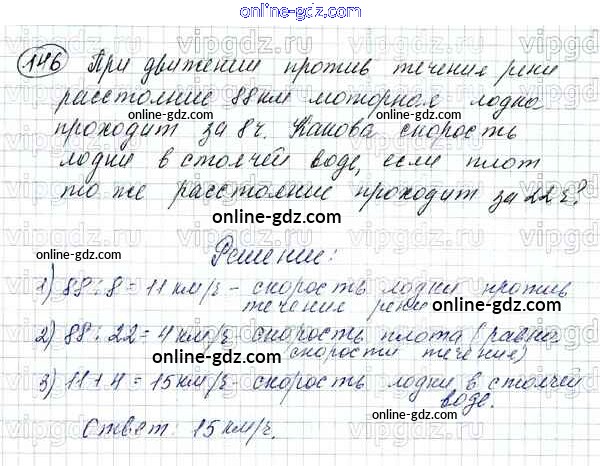 online-gdz.com
146 При движении против течения реки
расстояние 88 км моторная лодка
проходит за 8 ч. Какова скорость
лодки в стоячей воде, если плот
то же расстояние проходит за 22 ч?
online-gdz.com
online-gdz.com
online-gdz.com
Решение:
1) 88 : 8 = 11 км/ч - скорость лодки против
течения реки
online-gdz.com
2) 88 : 22 = 4 км/ч - скорость плота (равна
скорости течения)
online-gdz.com
online-gdz.com
3) 11 + 4 = 15 км/ч - скорость лодки в стоячей
воде.
online-gdz.com
online-gdz.com
Ответ: 15 км/ч.
online-gdz.com